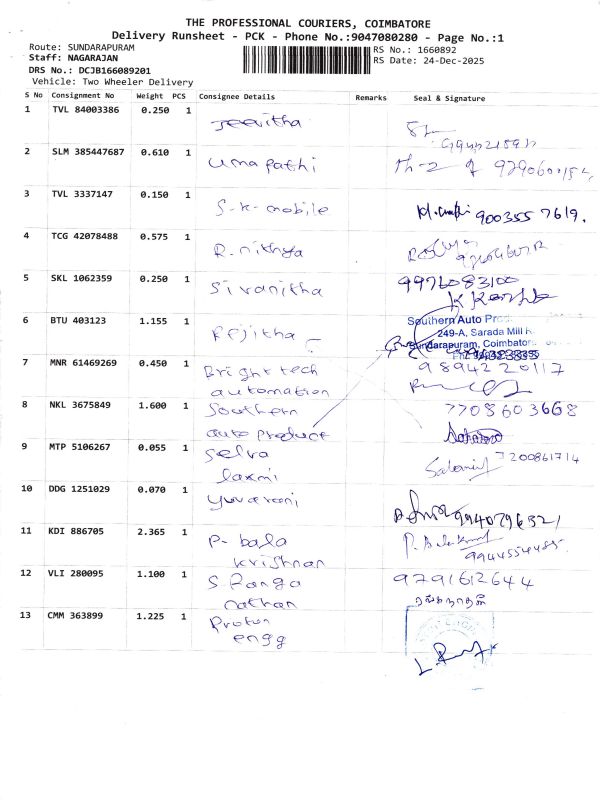 THE PROFESSIONAL COURIERS, COIMBATORE
Delivery Runsheet - PCK - Phone No.:9047080280 - Page No.:1
Route: SUNDARAPURAM
RS No.: 1660892
Staff: NAGARAJAN
RS Date: 24-Dec-2025
DRS No.: DCJB166089201
Vehicle: Two Wheeler Delivery
S No Consignment No Weight PCS Consignee Details Remarks Seal & Signature
1 TVL 84003386 0.250 1 Jeevitha
2 SLM 385447687 0.610 1 Umapathi
3 TVL 3337147 0.150 1 S-K-mobile 900355 7619.
4 TCG 42078488 0.575 1 R.nithya
5 SKL 1062359 0.250 1 Sivanitha 9976083100
6 BTU 403123 1.155 1 Rejitha
Southern Auto
249-A, Sarada Mill R
Sundarapuram, Coimbator
7 MNR 61469269 0.450 1 Bright tech 9894220117
automation
8 NKL 3675849 1.600 1 Southern 7708603668
auto product
9 MTP 5106267 0.055 1 Selva
laxmi
10 DDG 1251029 0.070 1 Yuvarani
11 KDI 886705 2.365 1 P- bala
krishnan
12 VLI 280095 1.100 1 S Ranga 9791612644
nathan ரங்கநாதன்
13 CMM 363899 1.225 1 Proton
engg